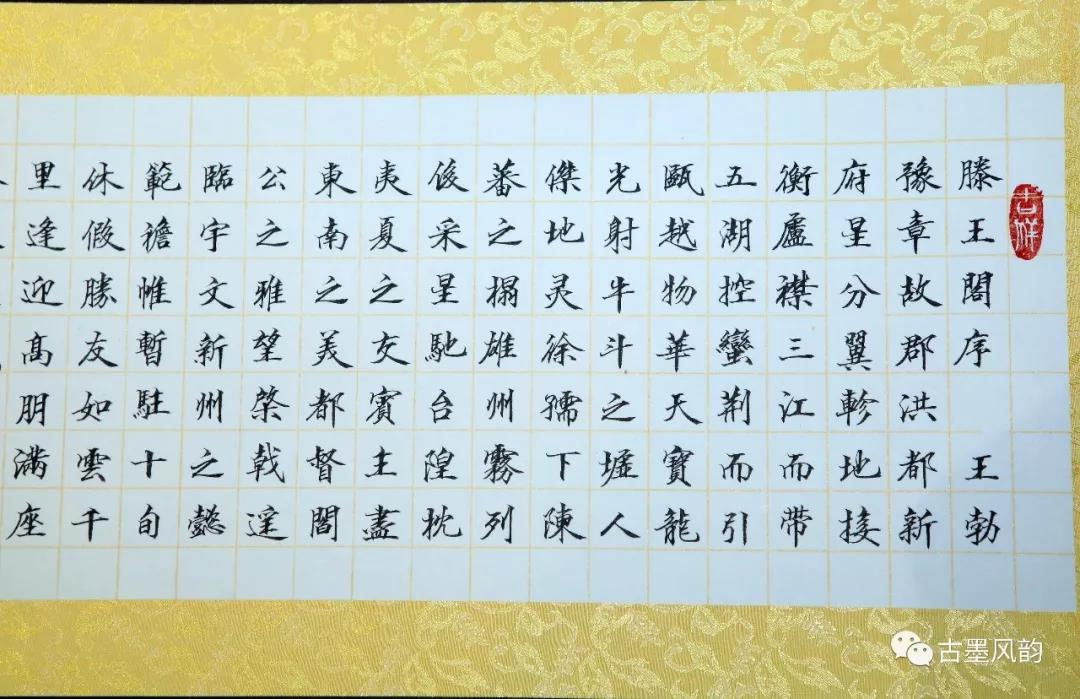 吉祥
滕王閣序 王勃
豫章故郡洪都新
府星分翼軫地接
衡廬襟三江而带
五湖控蠻荆而引
甌越物華天寶龍
光射牛斗之墟人
傑地灵徐孺下陳
蕃之榻雄州霧列
俊采星馳台隍枕
夷夏之交賓主盡
東南之美都督閻
公之雅望棨戟遥
臨宇文新州之懿
範襜帷暫駐十旬
休假勝友如雲千
里逢迎高朋满座
古墨风韵